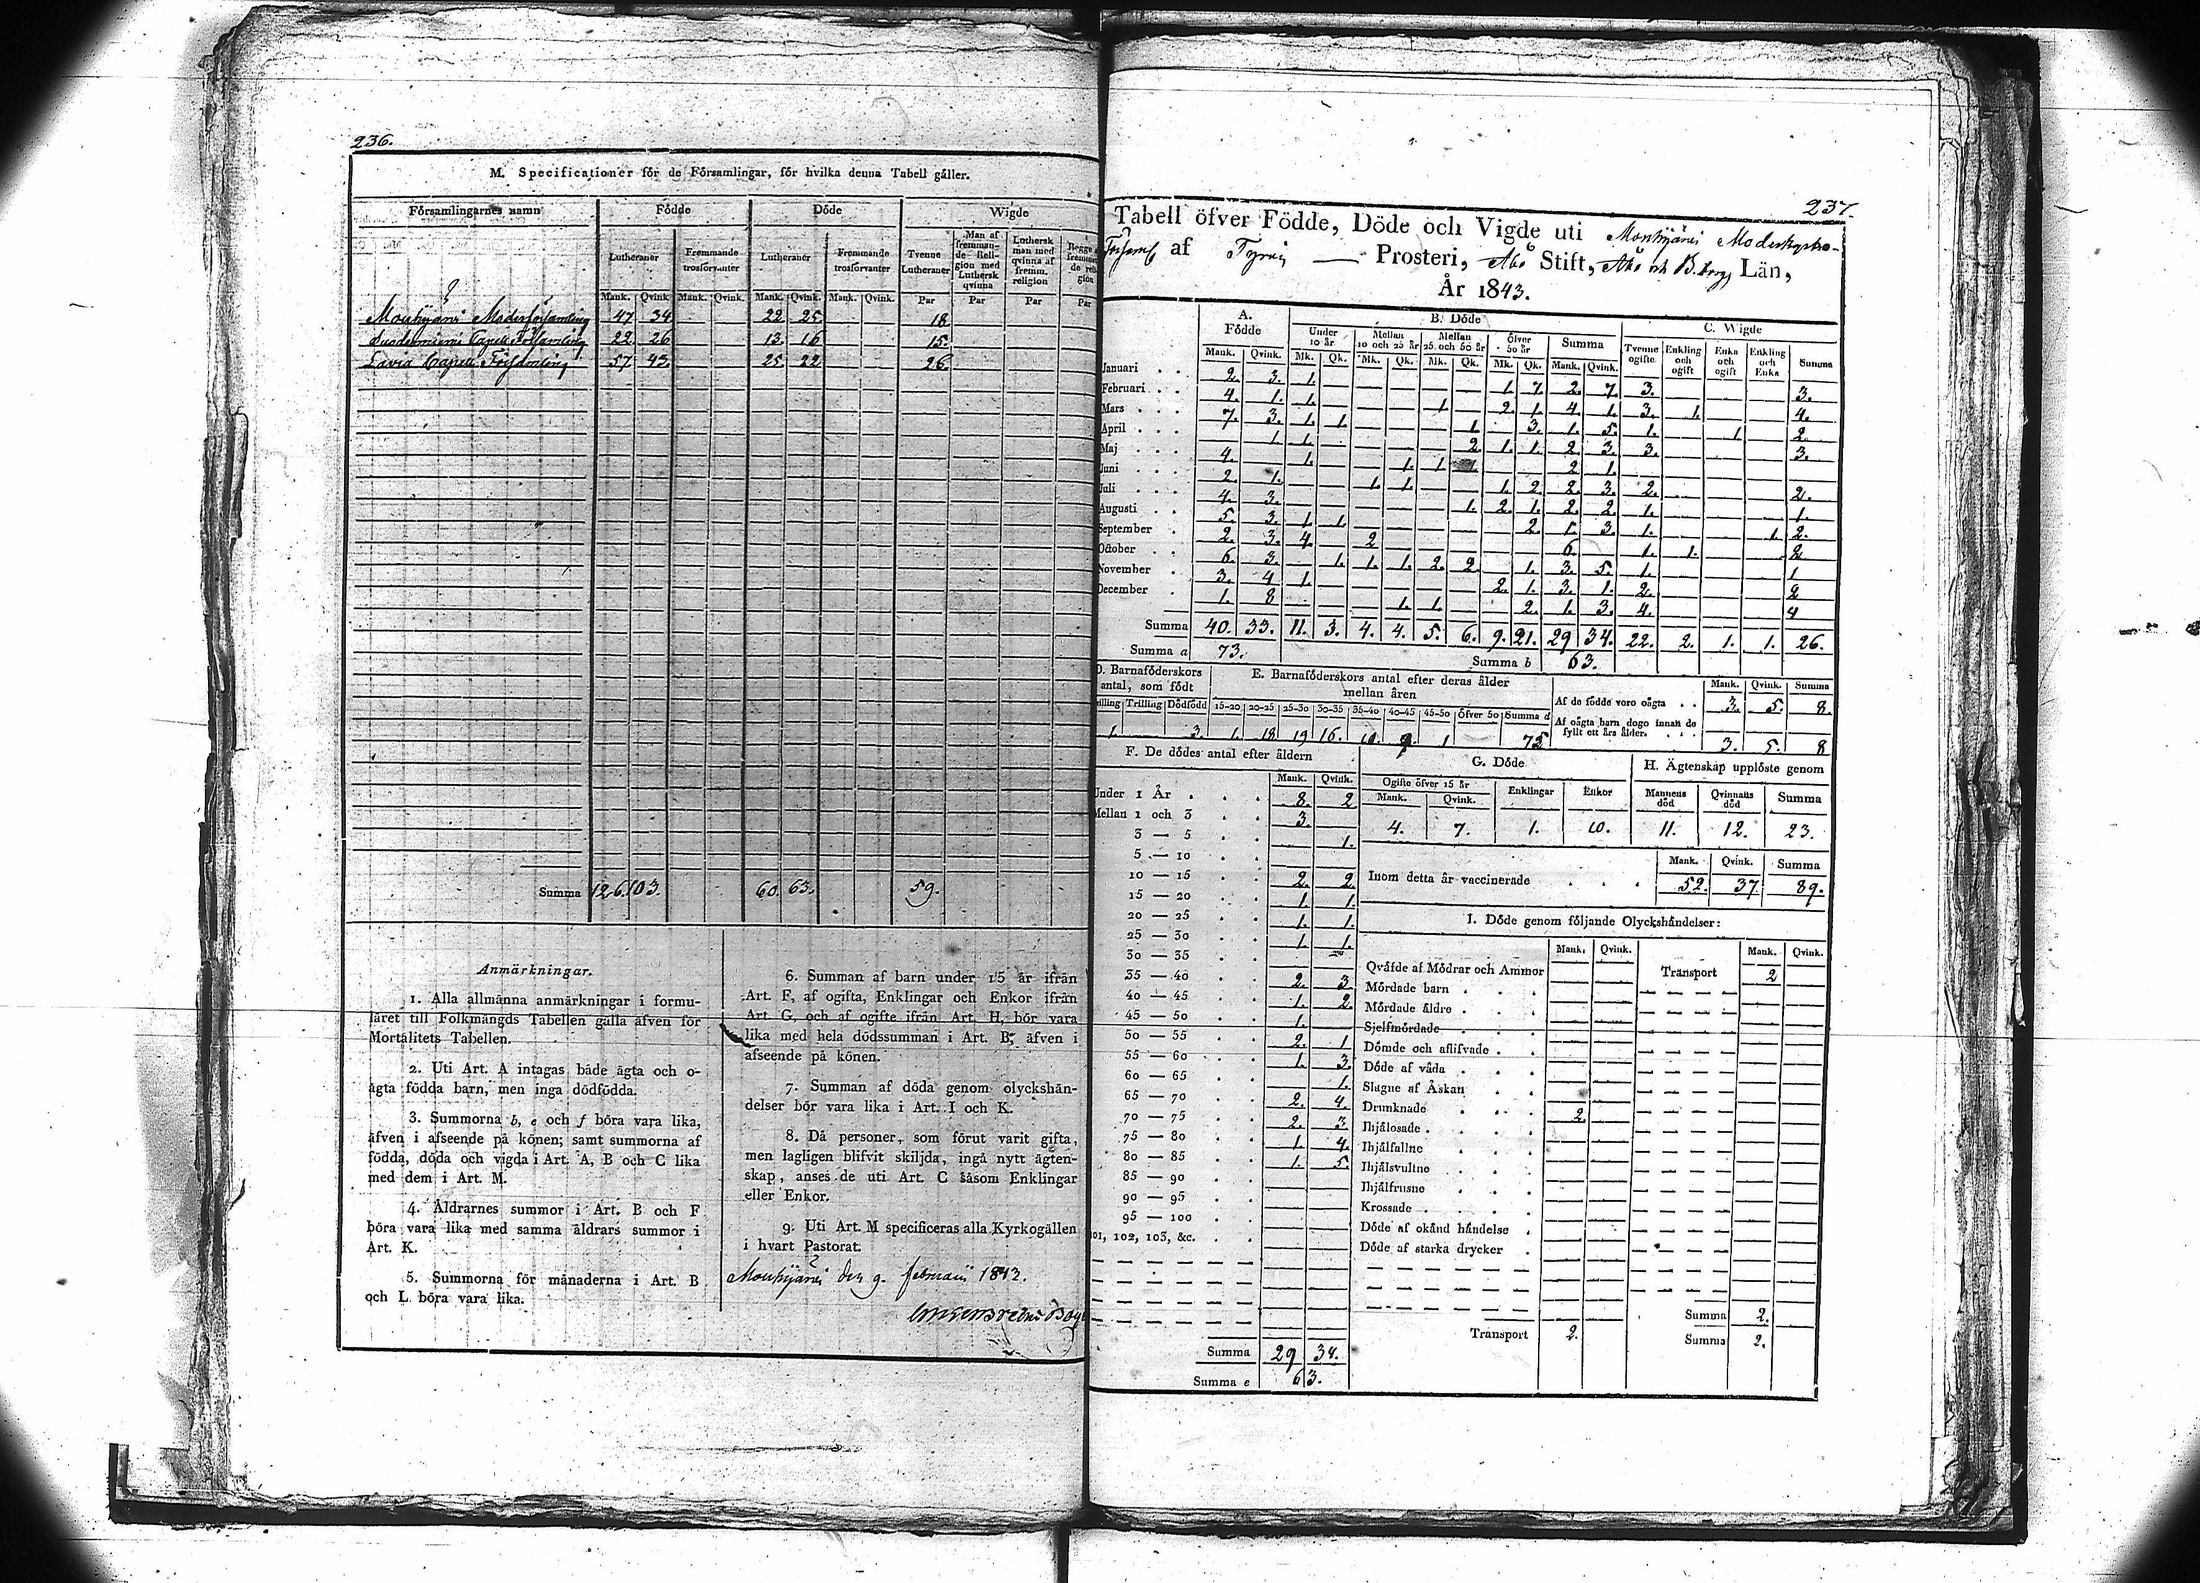 236.
M. Specificationer fór de Fórsamlingar, fór hvilka denna Tabell gäller.
Fórsamlingarnes namn Fódde Dóde Wigde
Lutheraner Fremmande trosforvanter Lutheraner Fremmande trosforvanter Tvenne Lutheraner Man af fremmande Religion med Luthersk qvinna Luthersk man med qvinna af fremm. religion
Mank. Qvink Mank. Qvink. Mank. Qvink. Mank. Qvink. Par Par Par Par
Mouhijärvi Moderförsamling 47 34 22 25 18
Suodenniemi Capell Församling 22. 26 13. 16 15.
Lavia Capell Församling 57. 43. 25. 22 26.
Summa 126. 103. 60. 63. 59.
Anmärkningar.
1. Alla allmänna anmärkningar i formu-
läret till Folkmängds Tabellen gälla äfven för
Mortalitets Tabellen.
2. Uti Art. A intagas både ägta och o-
ägta födda barn, men inga dödfödda.
3. Summorna b, e och f böra vara lika,
äfven i afseende på könen; samt summorna af
födda, döda och vigda i Art. A, B och C lika
med dem i Art. M.
4. Äldrarnes summor i Art. B och F
böra vara lika med samma äldrars summor i
Art. K.
5. Summorna för månaderna i Art. B
och L böra vara lika.
6. Summan af barn under 15 år ifrån
Art. F, af ogifta, Enklingar och Enkor ifrån
Art. G, och af ogifte ifrån Art. H, bör vara
lika med hela dödssumman i Art. B, äfven i
afseende på könen.
7. Summan af döda genom olyckshän-
delser bör vara lika i Art. I och K.
8. Då personer, som förut varit gifta,
men lagligen blifvit skiljda, ingå nytt ägten-
skap, anses de uti Art. C såsom Enklingar
eller Enkor.
9. Uti Art. M specificeras alla Kyrkogällen
i hvart Pastorat.
Mouhijärvi den 9. februarii 1842.
237.
Tabell öfver Födde, Döde och Vigde uti Mouhijärvi Moderkyrko-
Församl. af Tyrvis Prosteri, Åbo Stift, Åbo och B.borgs Län,
År 1843.
A. Fódde B. Dóde C. Wigde
Under 10 år Mellan 10 och 25 år Mellan 25 och 50 år Öfver 50 år Summa Tvenne ogifte Enkling och ogift Enka och ogift Enkling och Enka Summa
Mank. Qvink. Mk. Qk. Mk. Qk. Mk. Qk. Mk. Qk. Mank. Qvink.
Januari 2. 3. 1. 1. 7. 2. 7. 3. 3.
Februari 4. 1. 1. 1 2. 1. 4. 1. 3. 1. 4.
Mars 7. 3. 1. 1. 1. 3. 1. 5. 1. 1 2.
April 1 1. 2. 1. 1. 2 3. 3. 3.
Maj 4. 1. 1. 1 2 1.
Juni 2. 1. 1. 1. 1. 2. 2. 3. 2. 2.
Juli 4. 3. 1. 2. 1. 2. 2. 1. 1.
Augusti 5. 3. 1. 1. 2. 1. 3. 1. 1. 2.
September 2. 3. 4. 2 6. 1. 1. 2
October 6. 3. 1. 1. 1. 2. 2. 1. 3. 5. 1. 1
November 3. 4 1. 2. 1. 3. 1. 2. 2
December 1. 8 1. 1. 2. 1. 3. 4. 4
Summa 40. 33. 11. 3. 4. 4. 5. 6. 9. 21. 29 34. 22. 2. 1. 1. 26.
Summa a 73. Summa b 63.
D. Barnaföderskors antal, som födt
Trilling Dódfódd
1. 3.
E. Barnaföderskors antal efter deras ålder mellan åren
15-20 20-25 25-30 30-35 35-40 40-45 45-50 Öfver 50 Summa d
1. 18 19 16. 10. 9. 1 73
Mank. Qvink. Summa
Af de födde voro oägta 3. 5. 8.
Af oägta barn dogo innan de fyllt ett års ålder. 3. 5. 8
F. De dódes antal efter äldern
Mank. Qvink.
Under 1 År 8. 2
Mellan 1 och 3 3.
3 — 5 1.
5 — 10
10 — 15 2. 2.
15 — 20 1. 1.
20 — 25 1. 1.
25 — 30 1. 1.
30 — 35
35 — 40 2. 3.
40 — 45 1. 2.
45 — 50 1.
50 — 55 2. 1
55 — 60 1. 3.
60 — 65 1.
65 — 70 2. 4.
70 — 75 2. 3
75 — 80 1. 4.
80 — 85 1. 5.
85 — 90
90 — 95
95 — 100
101, 102, 103, &c.
Summa 29 34.
Summa e 63.
G. Dóde
Ogifte öfver 15 år Enklingar Enkor
Mank. Qvink.
4. 7. 1. 10.
H. Ägtenskap upplóste genom
Mannens dód Qvinnans dód Summa
11. 12. 23.
Mank. Qvink. Summa
Inom detta år vaccinerade 52. 37. 89.
I. Dóde genom fóljande Olyckshändelser:
Mank. Qvink. Mank. Qvink.
Qväfde af Módrar och Ammor Transport 2
Mórdade barn
Mórdade äldre
Sjelfmórdade
Dómde och aflifvade
Dóde af våda
Slagne af Åskan
Drunknade 2.
Ihjälosade
Ihjälfallne
Ihjälsvultne
Ihjälfrusne
Krossade
Dóde af okänd händelse
Dóde af starka drycker
Transport 2.
Summa 2.
Summa 2.